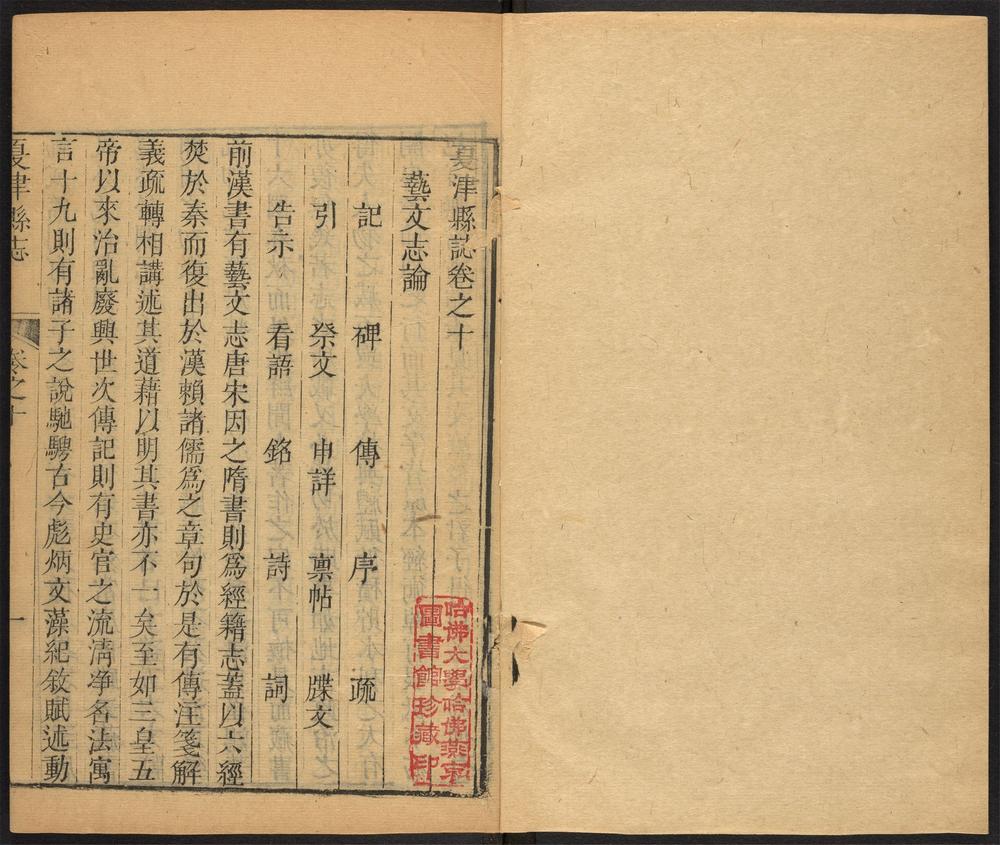 夏津縣誌卷之十
藝文志論
記 碑 傳 序 疏
引 祭文 申詳 禀帖 牒文
告示 看語 銘 詩 詞
前漢書有藝文志唐宋因之隋書則爲經籍志蓋以六經
焚於秦而復出於漢賴諸儒爲之章句於是有傳注箋解
義疏轉相講述其道藉以明其書亦不一矣至如三皇五
帝以來治亂廢興世次傳記則有史官之流清净名法寓
言十九則有諸子之說馳騁古今彪炳文藻紀敘賦述動
夏津縣志 卷之十 一
哈佛大學哈佛燕京
圖書館珍藏印